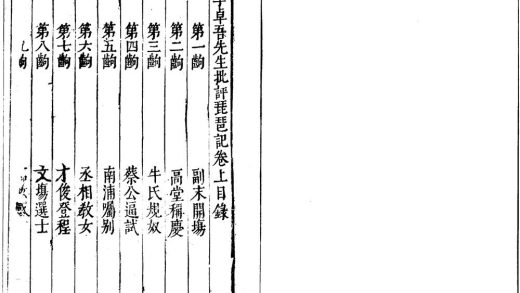 卓吾先生批評琵琶記卷上目錄
第一齣 副末開塲
第二齣 高堂稱慶
第三齣 牛氏規奴
第四齣 蔡公逼試
第五齣 南浦囑别
第六齣 丞相教女
第七齣 才俊登程
第八齣 文塲選士